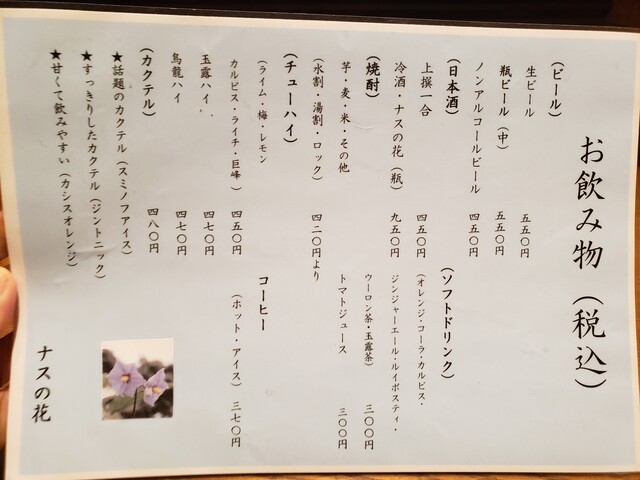 お飲み物（税込）
（ビール）
生ビール 五五〇円
瓶ビール（中） 五五〇円
ノンアルコールビール 四五〇円
（日本酒）
上撰一合 四五〇円
冷酒・ナスの花（瓶） 九五〇円
（焼酎）
芋・麦・米・その他
（水割・湯割・ロック） 四二〇円より
（チューハイ）
（ライム・梅・レモン
カルピス・ライチ・巨峰） 四五〇円
玉露ハイ 四七〇円
烏龍ハイ 四七〇円
（カクテル） 四八〇円
★話題のカクテル（スミノフアイス）
★すっきりしたカクテル（ジントニック）
★甘くて飲みやすい（カシスオレンジ）
（ソフトドリンク）
（オレンジ・コーラ・カルピス・
ジンジャーエール・ルイボスティ・
ウーロン茶・玉露茶） 三〇〇円
トマトジュース 三〇〇円
コーヒー
（ホット・アイス） 三七〇円
ナスの花